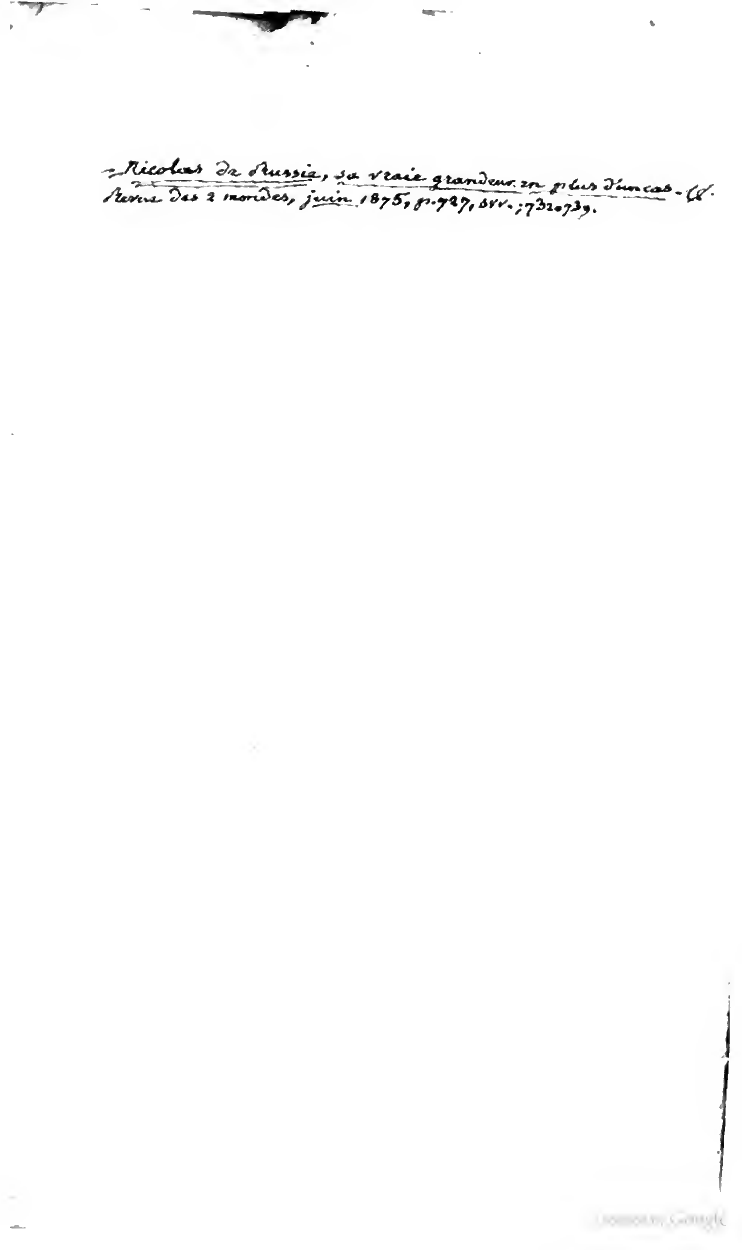 - Nicolas de Russie, sa vraie grandeur en plus d'un cas. - Cf.
Revue des 2 mondes, juin 1875, p. 727, svv. ; 732.739.
Google